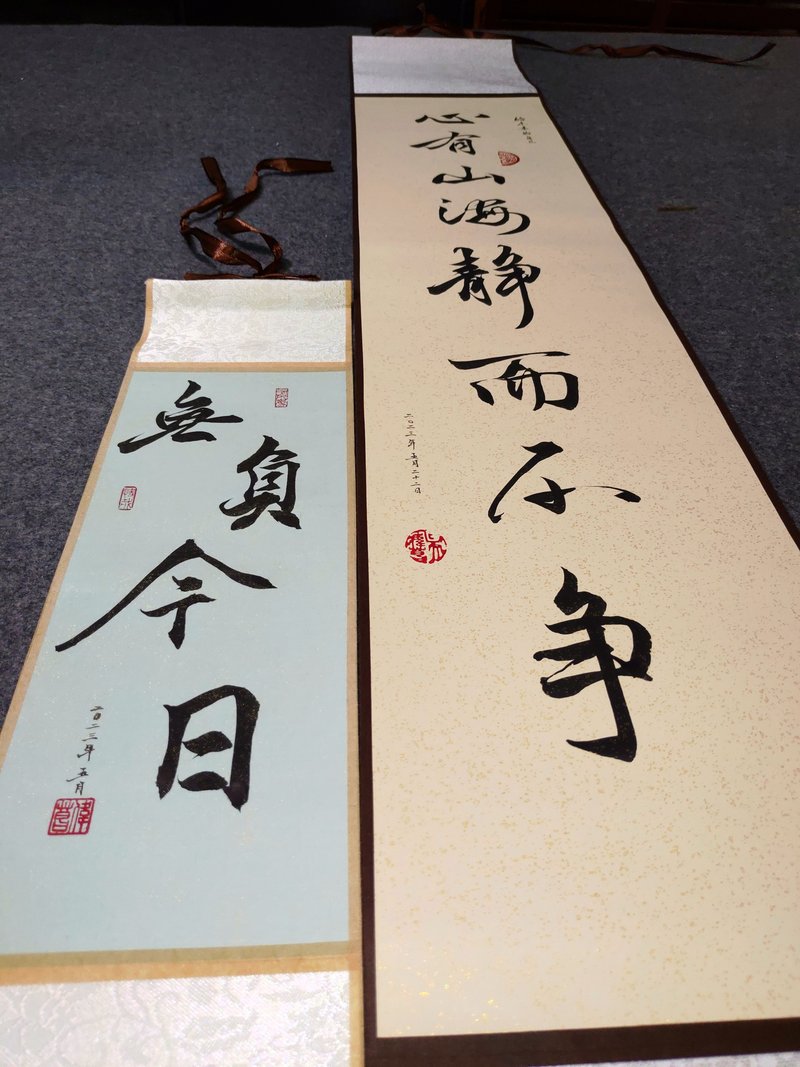 心有山海静而不争
二〇二三年五月二十二日
無負今日
二〇二三年五月